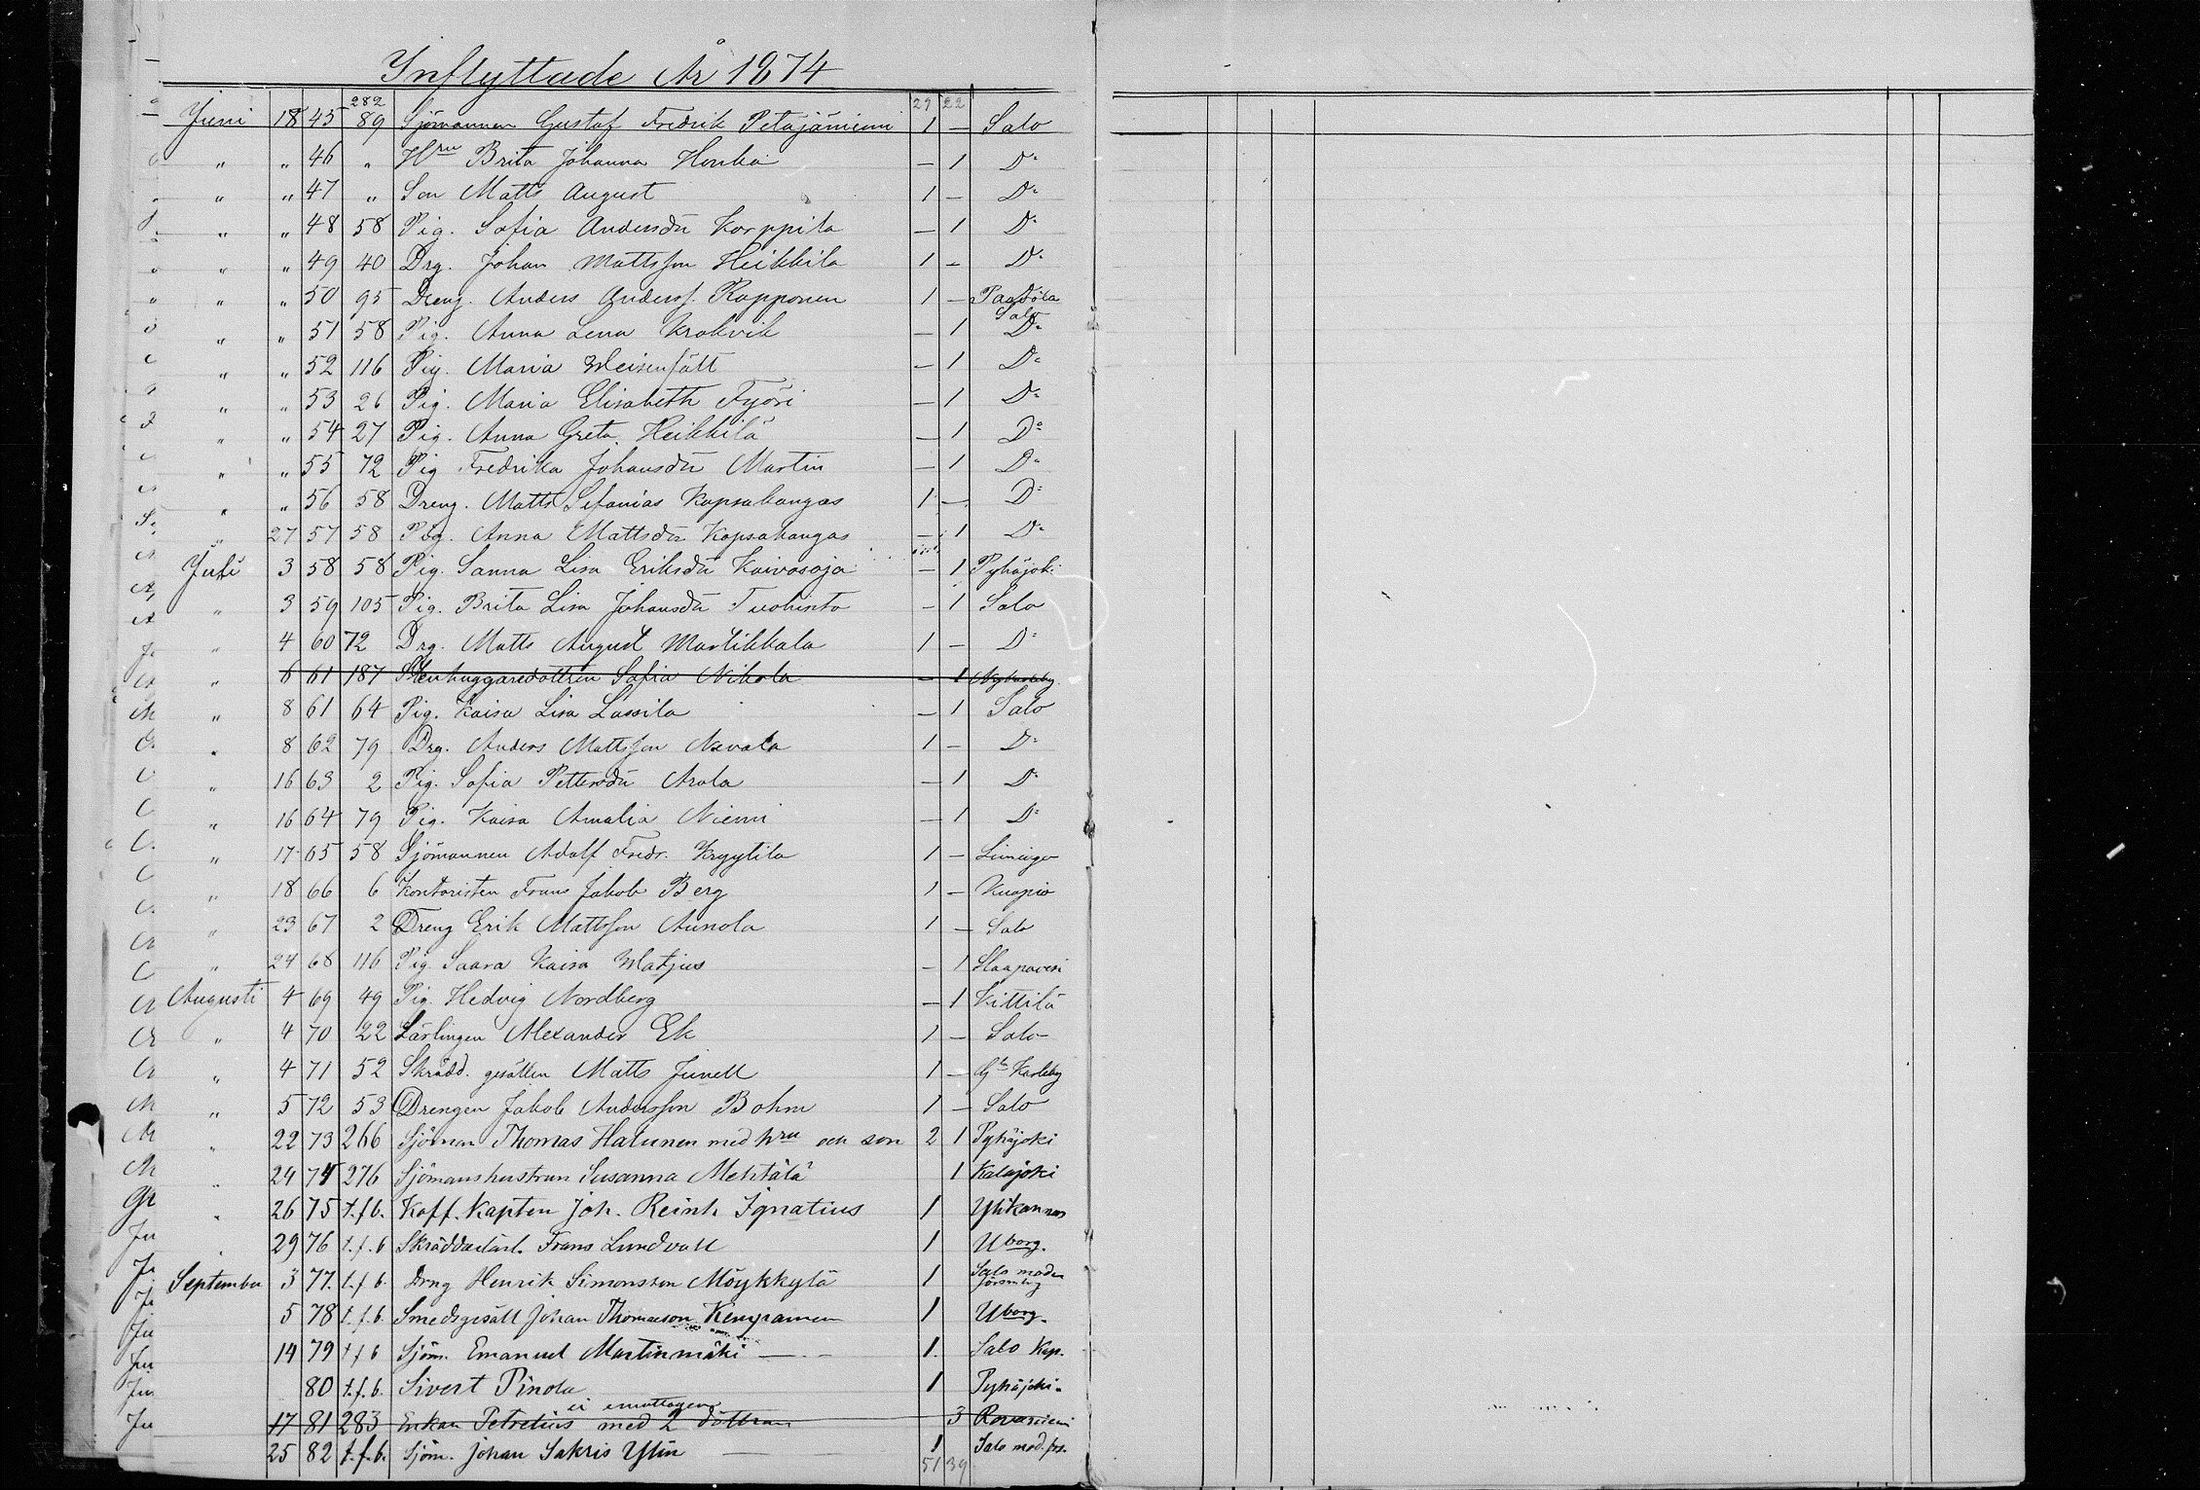 Inflyttade År 1874
282 29 22
Juni 18 45 89 Sjömannen Gustaf Fredrik Petäjäniemi 1 — Salo
" " 46 " Hru Brita Johanna Honka — 1 Do
" " 47 " Son Matts August 1 — Do
" " 48 58 Pig. Sofia Andersdr Korppila — 1 Do
" " 49 40 Drg. Johan Mattsson Heikkilä 1 — Do
" " 50 95 Dreng. Anders Anderss. Rapponen 1 — Paavola
Salo
" " 51 58 Pig. Anna Lena Krokvik — 1 Do
" " 52 116 Pig. Maria — 1 Do
" " 53 26 Pig. Maria Elisabeth Fyöri — 1 Do
" " 54 27 Pig. Anna Greta Heikkilä — 1 Do
" " 55 72 Pig Fredrika Johansdr Martin — 1 Do
" " 56 58 Dreng. Matts Sefanias Kopsakangas 1 — Do
" 27 57 58 Pig. Anna Mattsdr Kopsakangas — 1 Do
Juli 3 58 58 Pig. Sanna Lisa Eriksdr Kaivosoja — 1 Pyhäjoki
" 3 59 105 Pig. Brita Lisa Johansdr Tuohinto — 1 Salo
" 4 60 72 Drg. Matts August Martikkala 1 — Do
" 6 61 187 Stenhuggaredottren Sofia Nikola — 1 Nykarleby
" 8 61 64 Pig. Kaisa Lisa Lassila — 1 Salo
" 8 62 79 Drg. Anders Mattsson Nevala 1 — Do
" 16 63 2 Pig. Sofia Pettersdr Arola — 1 Do
" 16 64 79 Pig. Kaisa Amalia Niemi — 1 Do
" 17 65 58 Sjömannen Adolf Fredr. Kryytilä 1 — Limingo
" 18 66 6 Kontoristen Frans Jakob Berg 1 — Kuopio
" 23 67 2 Dreng Erik Mattsson Aunola 1 — Salo
" 24 68 116 Pig. Saara Kaisa Matjus — 1 Haapavesi
Augusti 4 69 49 Pig. Hedvig Nordberg — 1 Kittilä
" 4 70 22 Lärlingen Alexander Ek 1 — Salo
" 4 71 52 Skrädd. gesällen Matts Junell 1 — Gl Karleby
" 5 72 53 Drengen Jakob Andersson Bohm 1 — Salo
" 22 73 266 Sjöman Thomas Halunen med hru och son 2 1 Pyhäjoki
" 24 74 276 Sjömanshustrun Susanna Mehtälä 1 Kalajoki
" 26 75 t.f.b. Koff. Kapten Joh. Reinh Ignatius 1 Ylikannus
" 29 76 t.f.b Skräddarlärl. Frans Lundvall 1 Uborg.
September 3 77. t.f.b. Drng Henrik Simonsson Möykkylä 1 Salo moder
församling
5 78 t.f.b. Smedsgesäll Johan Thomasson Kemppainen 1 Uborg.
14 79 t.f.b Sjöm. Emanuel Martinmäki — 1. Salo Kap.
80 t.f.b. Sivert Pinola 1 Pyhäjoki.
ei emottagen
17 81 283 Enkan Petrelius med 2 döttrar 3 Rovaniemi
25 82 t.f.b. Sjöm. Johan Sakris Ylin — 1 Salo mod. frs.
51 39